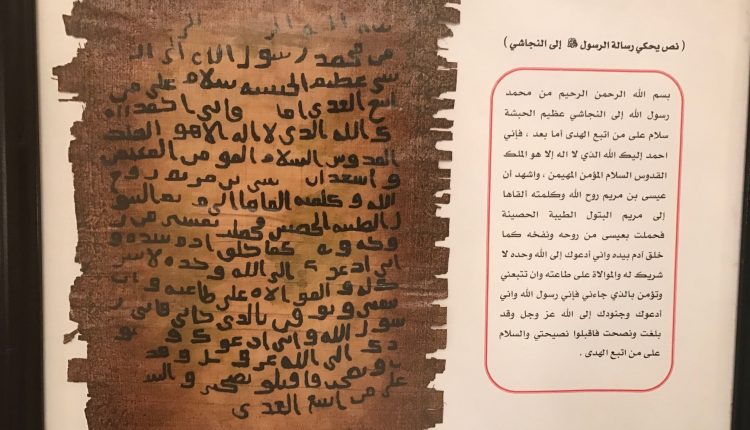 ( نص يحكي رسالة الرسول ﷺ إلى النجاشي )
بسم الله الرحمن الرحيم من محمد
رسول الله إلى النجاشي عظيم الحبشة
سلام على من اتبع الهدى أما بعد ، فإني
احمد إليك الله الذي لا اله إلا هو الملك
القدوس السلام المؤمن المهيمن ، واشهد أن
عيسى بن مريم روح الله وكلمته ألقاها
إلى مريم البتول الطيبة الحصينة
فحملت بعيسى من روحه ونفخه كما
خلق آدم بيده واني أدعوك إلى الله وحده لا
شريك له والموالاة على طاعته وان تتبعني
وتؤمن بالذي جاءني فإني رسول الله واني
أدعوك وجنودك إلى الله عز وجل وقد
بلغت ونصحت فاقبلوا نصيحتي والسلام
على من اتبع الهدى .
من محمد رسول الله الى
سى عظيم الحبسه سلام على من
اتبع الهدى اما فانى احمد
ك الله الذى لا اله الا هو الملك
القدوس السلام المومن المهيمن
و اسهد ان بن مريم روح
الله و كلمته القاها الى مريم البتو
ل الطيبه الحصينه فحملت بعيسى من ر
وحه و كما خلق ادم بيده و
انى ادعوك الى الله وحده لا سر
ك له و الموالاه على طاعته و ان
و تومن بالذى جانى فانى ر
سول الله و انى ادعوك و
دك الى الله عز و جل و قد
و نصحت فاقبلو نصيحتى و السلا
على من اتبع الهدى